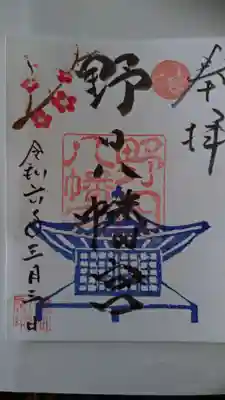 奉拝
野八幡宮
令和六年三月二日
野
八幡